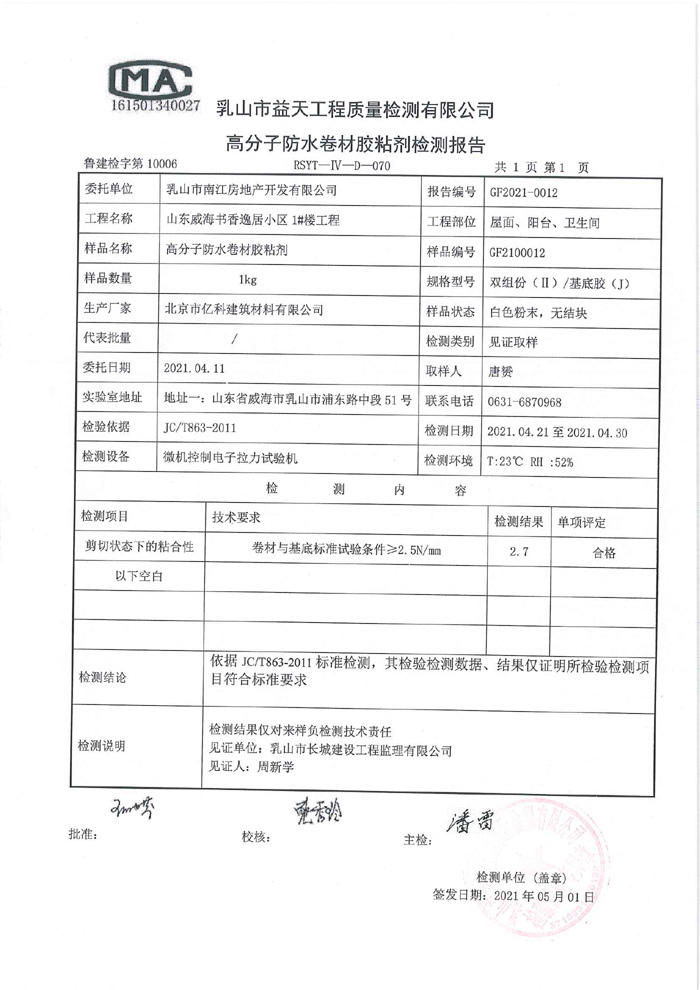 CMA
161501340027
乳山市益天工程质量检测有限公司
高分子防水卷材胶粘剂检测报告
鲁建检字第 10006 RSYT—Ⅳ—D—070 共 1 页 第 1 页
委托单位 乳山市南江房地产开发有限公司 报告编号 GF2021-0012
工程名称 山东威海书香逸居小区 1#楼工程 工程部位 屋面、阳台、卫生间
样品名称 高分子防水卷材胶粘剂 样品编号 GF2100012
样品数量 1kg 规格型号 双组份（Ⅱ）/基底胶（J）
生产厂家 北京市亿科建筑材料有限公司 样品状态 白色粉末，无结块
代表批量 / 检测类别 见证取样
委托日期 2021.04.11 取样人 唐赟
实验室地址 地址一：山东省威海市乳山市浦东路中段 51 号 联系电话 0631-6870968
检验依据 JC/T863-2011 检测日期 2021.04.21 至 2021.04.30
检测设备 微机控制电子拉力试验机 检测环境 T:23℃ RH :52%
检 测 内 容
检测项目 技术要求 检测结果 单项评定
剪切状态下的粘合性 卷材与基底标准试验条件≥2.5N/mm 2.7 合格
以下空白
检测结论 依据 JC/T863-2011 标准检测，其检验检测数据、结果仅证明所检验检测项
目符合标准要求
检测说明 检测结果仅对来样负检测技术责任
见证单位：乳山市长城建设工程监理有限公司
见证人：周新学
批准： 校核： 主检： 潘雷
检测单位（盖章）
签发日期：2021 年 05 月 01 日